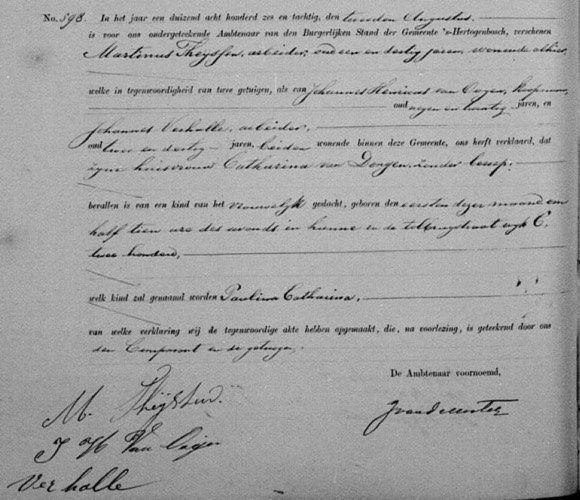 No. 598. In het jaar een duizend acht honderd zes en tachtig, den tweeden Augustus.
is voor ons ondergeteekende Ambtenaar van den Burgerlijken Stand der Gemeente 's-Hertogenbosch, verschenen
Martinus Theyssen, arbeider, een en dertig jaren, wonende alhier
welke in tegenwoordigheid van twee getuigen, als van Johannes Henricus van Oagen, koopman,
oud negen en twintig jaren, en
Johannes Verhalle, arbeider,
oud twee en dertig jaren, beiden wonende binnen deze Gemeente, ons heeft verklaard, dat
zijne huisvrouw Catharina van Dongen, zonder beroep.
bevallen is van een kind van het vrouwelijk geslacht, geboren den eersten dezer maand om
half tien ure des avonds in hunne en de wijk C.
twee honderd,
welk kind zal genaamd worden Paulina Catharina,
van welke verklaring wij de tegenwoordige akte hebben opgemaakt, die, na voorlezing, is geteekend door ons
den Comparant en de getuigen.
De Ambtenaar voornoemd,
M. Theijssen.
J H Van
Verhalle